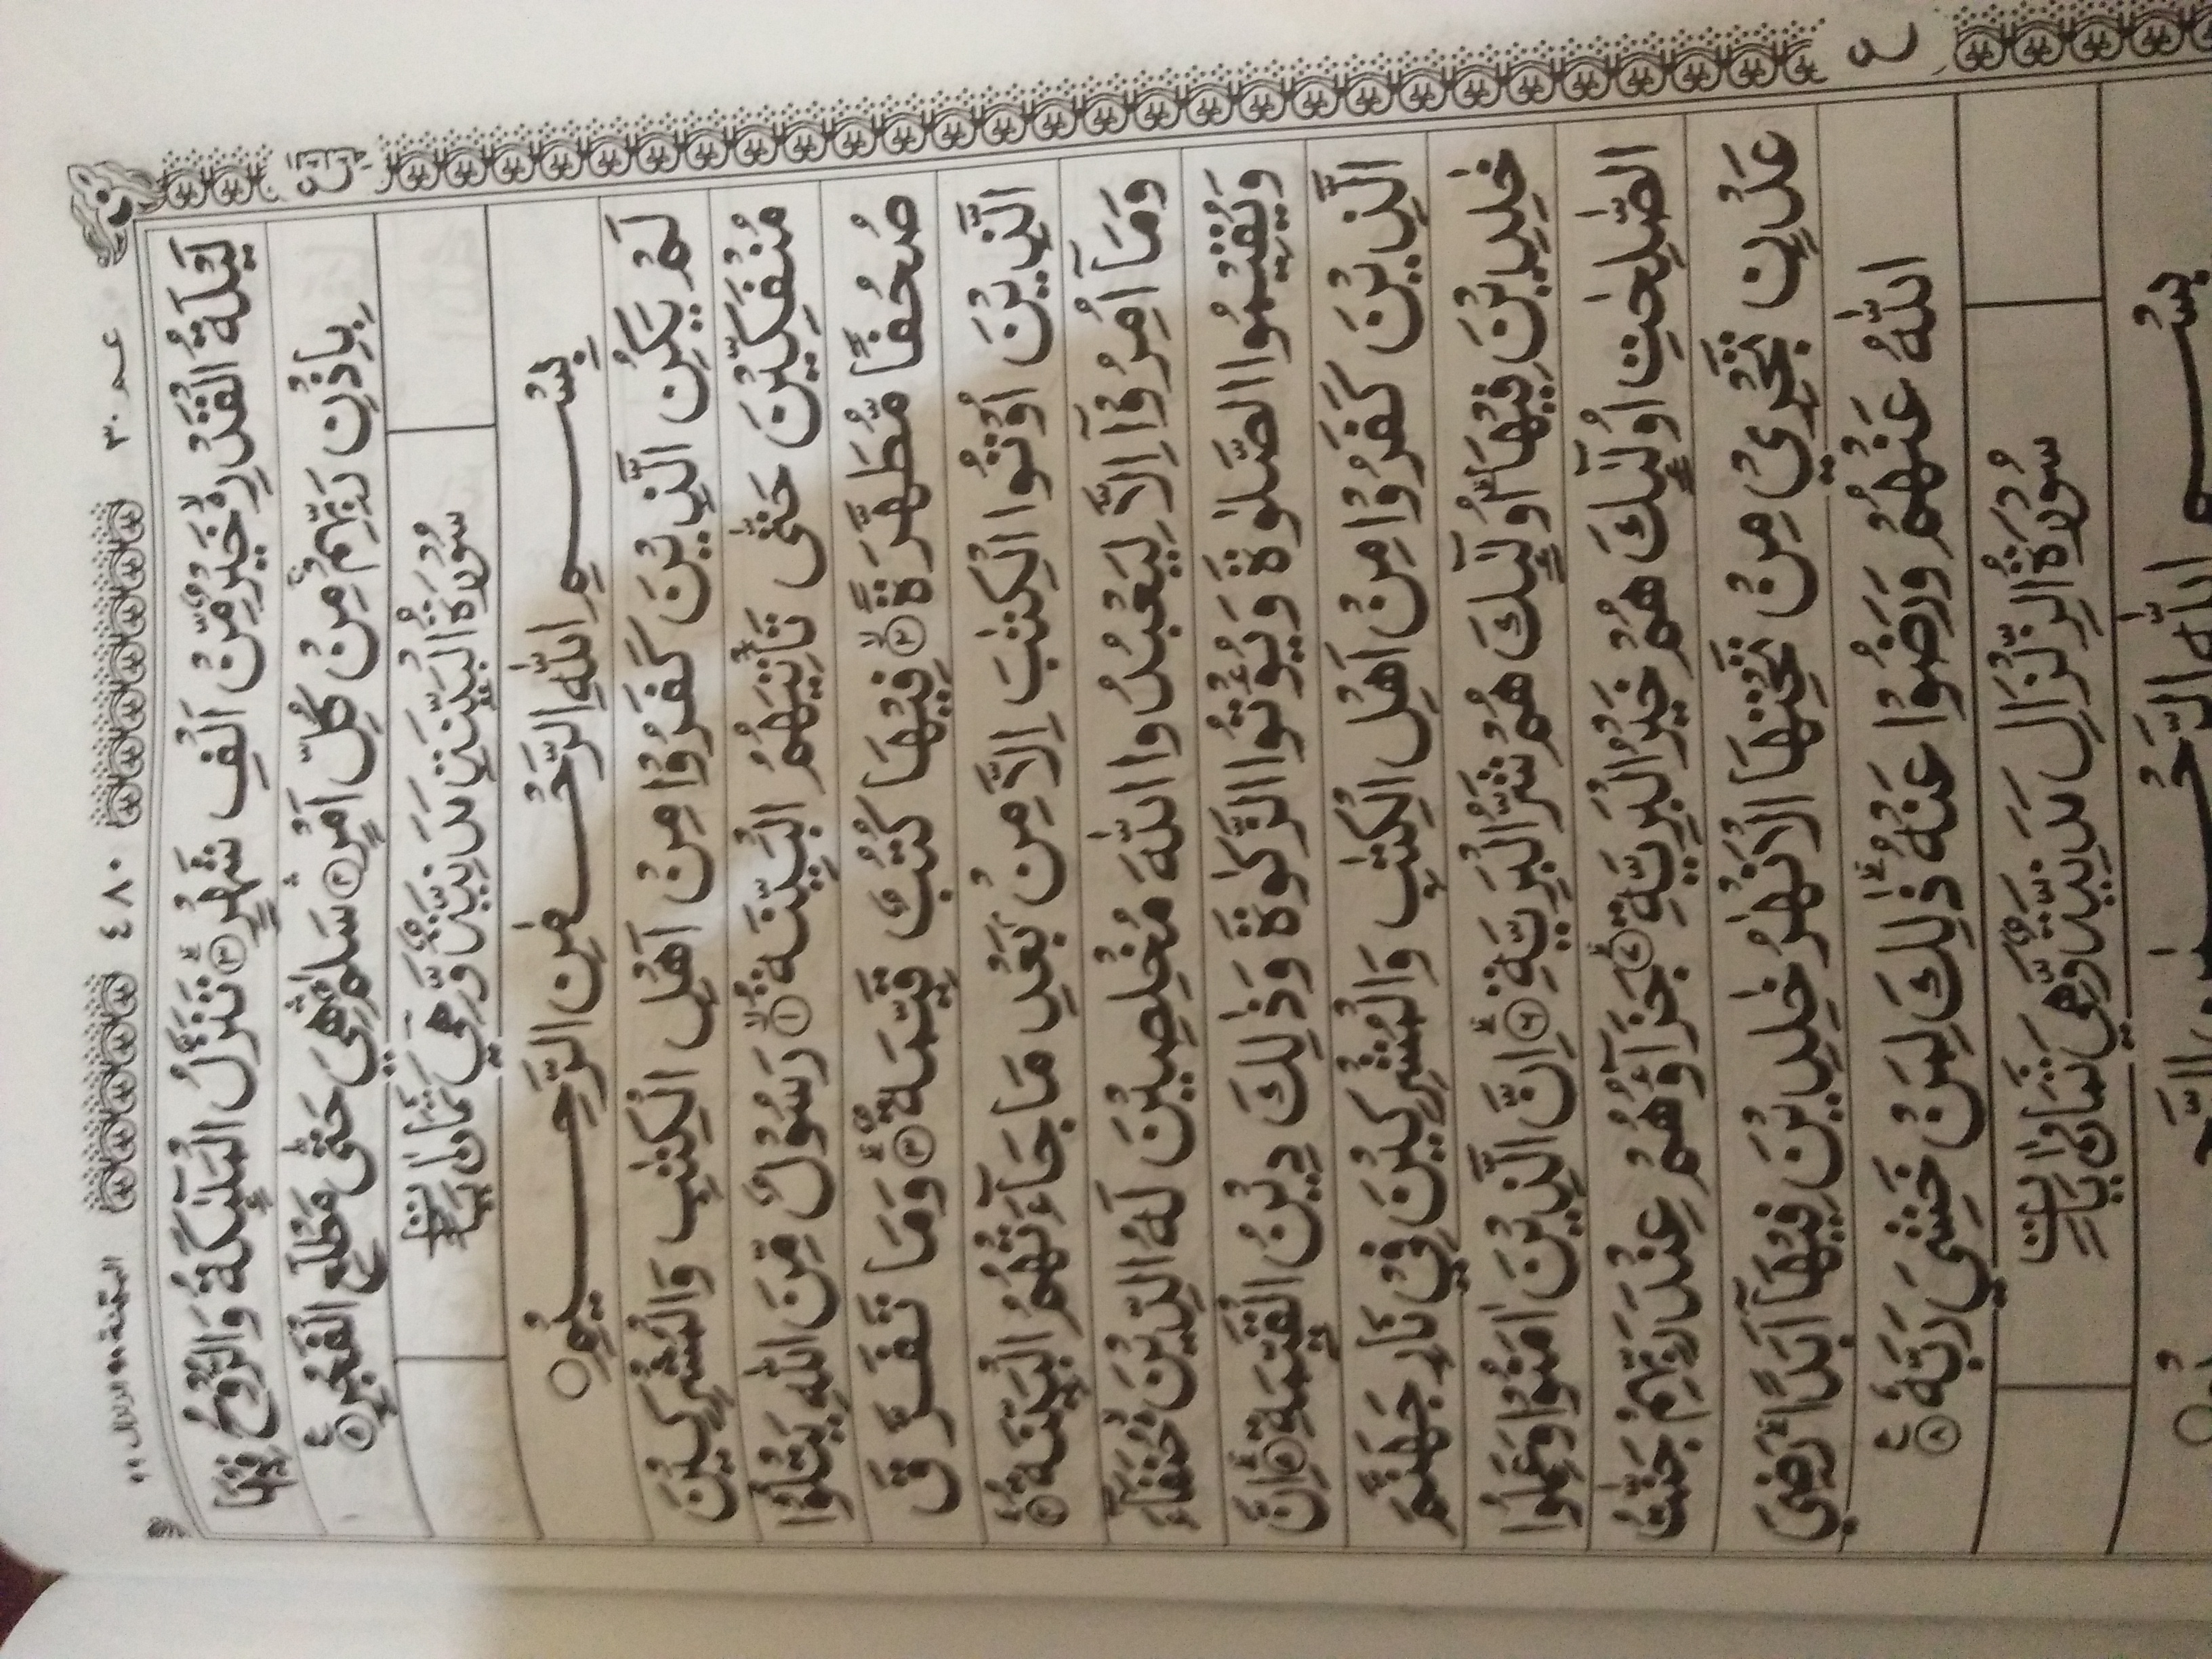 البيّنة ٩٨ الزلزال ٩٩ ٤٨٠ عــمّ ٣٠
لَيْلَةُ الْقَدْرِ ۙ خَيْرٌ مِّنْ اَلْفِ شَهْرٍ ﴿٣﴾ؕ تَنَزَّلُ الْمَلٰٓئِكَةُ وَالرُّوْحُ فِيْهَا
بِاِذْنِ رَبِّهِمْ ۚ مِنْ كُلِّ اَمْرٍ ﴿٤﴾ۛ سَلٰمٌ ۛ هِيَ حَتّٰى مَطْلَعِ الْفَجْرِ ﴿٥﴾
سُوْرَةُ الْبَيِّنَةِ مَدَنِيَّةٌ وَّهِيَ ثَمَانِ اٰيَاتٍ
بِسْمِ اللّٰهِ الرَّحْمٰنِ الرَّحِيْمِ
لَمْ يَكُنِ الَّذِيْنَ كَفَرُوْا مِنْ اَهْلِ الْكِتٰبِ وَالْمُشْرِكِيْنَ
مُنْفَكِّيْنَ حَتّٰى تَاْتِيَهُمُ الْبَيِّنَةُ ﴿١﴾ۙ رَسُوْلٌ مِّنَ اللّٰهِ يَتْلُوْا
صُحُفًا مُّطَهَّرَةً ﴿٢﴾ۙ فِيْهَا كُتُبٌ قَيِّمَةٌ ﴿٣﴾ؕ وَمَا تَفَرَّقَ
الَّذِيْنَ اُوْتُوا الْكِتٰبَ اِلَّا مِنْۢ بَعْدِ مَا جَآءَتْهُمُ الْبَيِّنَةُ ﴿٤﴾ؕ
وَمَآ اُمِرُوْٓا اِلَّا لِيَعْبُدُوا اللّٰهَ مُخْلِصِيْنَ لَهُ الدِّيْنَ ۙ حُنَفَآءَ
وَيُقِيْمُوا الصَّلٰوةَ وَيُؤْتُوا الزَّكٰوةَ وَذٰلِكَ دِيْنُ الْقَيِّمَةِ ﴿٥﴾ؕ اِنَّ
الَّذِيْنَ كَفَرُوْا مِنْ اَهْلِ الْكِتٰبِ وَالْمُشْرِكِيْنَ فِيْ نَارِ جَهَنَّمَ
خٰلِدِيْنَ فِيْهَا ؕ اُولٰٓئِكَ هُمْ شَرُّ الْبَرِيَّةِ ﴿٦﴾ؕ اِنَّ الَّذِيْنَ اٰمَنُوْا وَعَمِلُوا
الصّٰلِحٰتِ اُولٰٓئِكَ هُمْ خَيْرُ الْبَرِيَّةِ ﴿٧﴾ؕ جَزَآؤُهُمْ عِنْدَ رَبِّهِمْ جَنّٰتُ
عَدْنٍ تَجْرِيْ مِنْ تَحْتِهَا الْاَنْهٰرُ خٰلِدِيْنَ فِيْهَآ اَبَدًا ؕ رَضِيَ
اللّٰهُ عَنْهُمْ وَرَضُوْا عَنْهُ ؕ ذٰلِكَ لِمَنْ خَشِيَ رَبَّهٗ ﴿٨﴾
سُوْرَةُ الزِّلْزَالِ مَدَنِيَّةٌ وَّهِيَ ثَمَانِيْ اٰيَاتٍ
بِسْمِ اللّٰهِ الرَّحْمٰنِ الرَّحِيْمِ